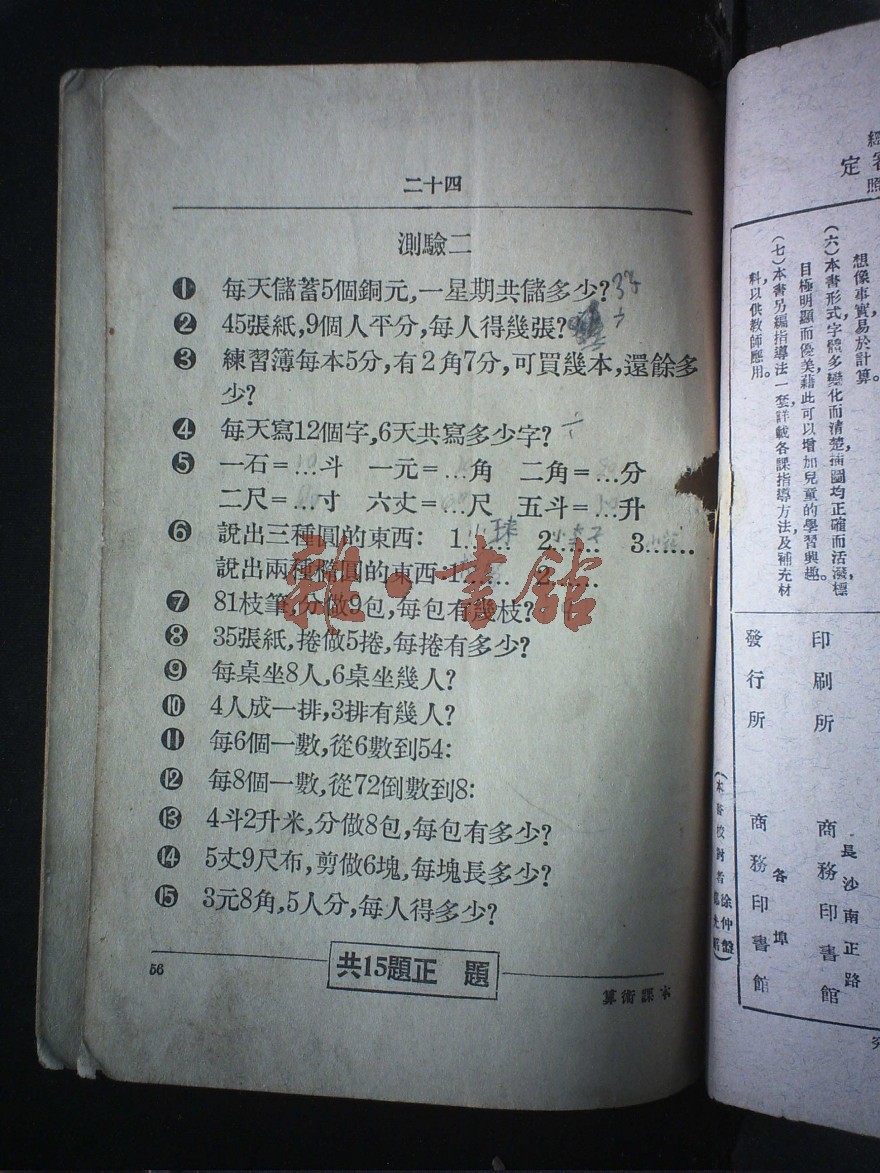 二十四
測驗二
❶ 每天儲蓄5個銅元,一星期共儲多少?35
❷ 45張紙,9個人平分,每人得幾張?
❸ 練習簿每本5分,有2角7分,可買幾本,還餘多
少?
❹ 每天寫12個字,6天共寫多少字?
❺ 一石=…斗 一元=…角 二角=…分
二尺=…寸 六丈=…尺 五斗=…升
❻ 說出三種圓的東西: 1……球 2…… 3……
說出兩種橢圓的東西:1…… 2……
❼ 81枝筆,分做9包,每包有幾枝?
❽ 35張紙,捲做5捲,每捲有多少?
❾ 每桌坐8人,6桌坐幾人?
❿ 4人成一排,3排有幾人?
⓫ 每6個一數,從6數到54:
⓬ 每8個一數,從72倒數到8:
⓭ 4斗2升米,分做8包,每包有多少?
⓮ 5丈9尺布,剪做6塊,每塊長多少?
⓯ 3元8角,5人分,每人得多少?
共15題正 題
56
算術課本
雜·書館
定
照
想像事實,易於計算。
(六)本書形式,字體多變化而清楚,插圖均正確而活潑,標
目極明顯而優美,藉此可以增加兒童的學習興趣。
(七)本書另編指導法一套,詳載各課指導方法及補充材
料,以供教師應用。
印刷所 商務印書館
長沙南正路
發行所 商務印書館
各埠
(本書校對者徐仲盤